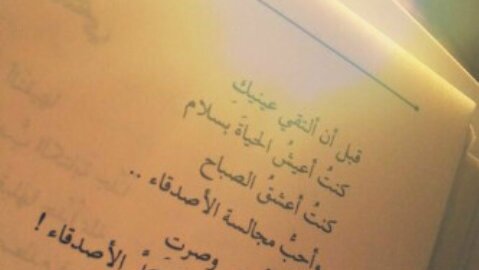 قبل أن ألتقي عينيكِ
كنتُ أعيشُ الحياة بسلام
كنتُ أعشقُ الصباح
وأحبُّ مجالسة الأصدقاء ..
وصرتِ
الأصدقاء !